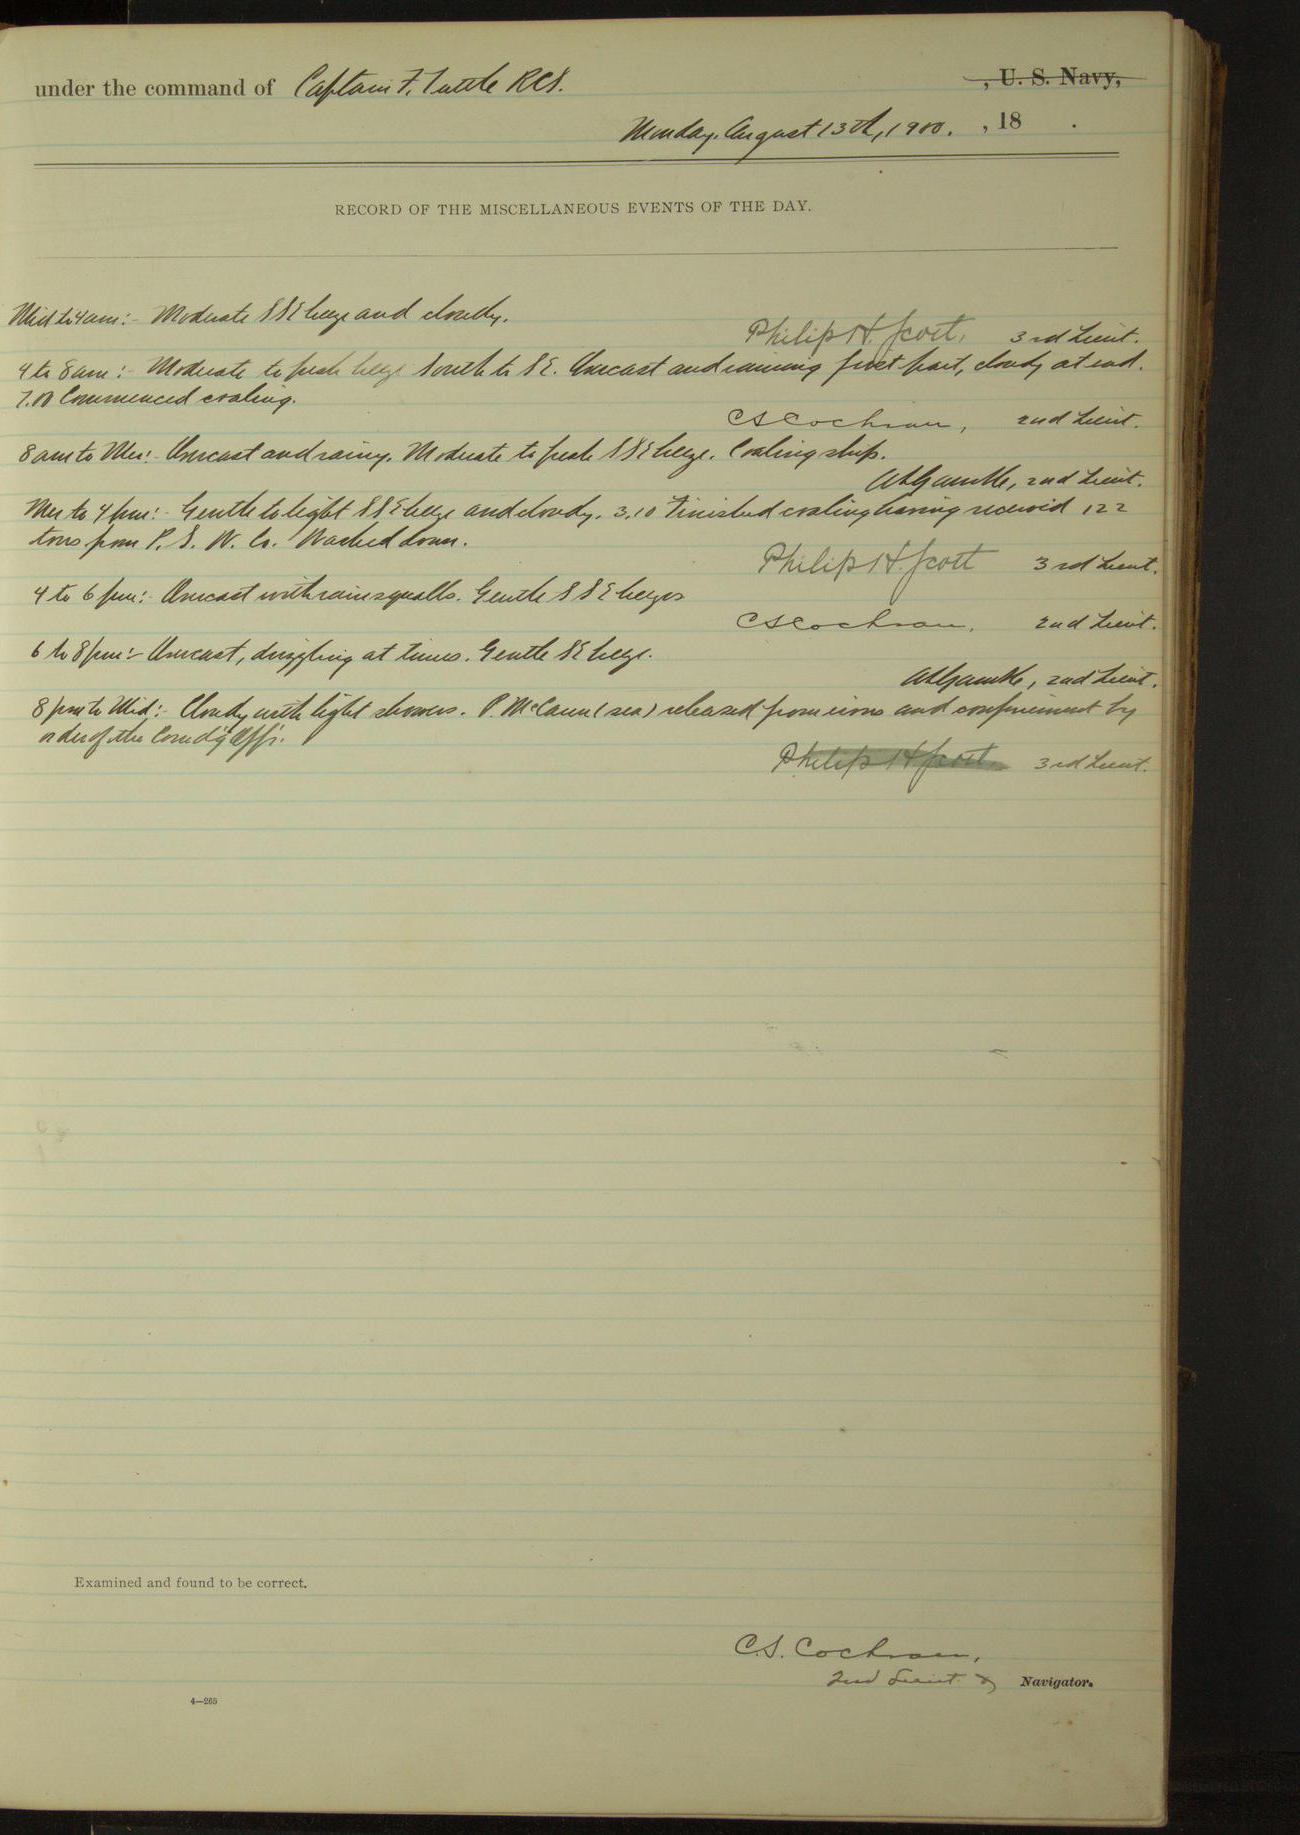 under the command of Captain F. Tuttle RCS. , U. S. Navy,
Monday, August 13th, 1900. , 18 .
RECORD OF THE MISCELLANEOUS EVENTS OF THE DAY.
Mid to 4 am:- Moderate SSE breeze and cloudy.
Philip H. Scott, 3rd Lieut.
4 to 8 am:- Moderate to fresh breeze South to SE. Overcast and raining first part, cloudy at end.
7.00 Commenced coaling.
C S Cochran, 2nd Lieut.
8 am to Mer:- Overcast and rainy. Moderate to fresh SSE breeze. Coaling ship.
A L Gamble, 2nd Lieut.
Mer to 4 pm:- Gentle to light SSE breeze and cloudy. 3.10 Finished coaling having received 122
tons from P. S. W. Co. Washed down.
Philip H. Scott 3rd Lieut.
4 to 6 pm:- Overcast with rain squalls. Gentle SSE breezes
C S Cochran, 2nd Lieut.
6 to 8 pm:- Overcast, drizzling at times. Gentle SE breeze.
A L Gamble, 2nd Lieut.
8 pm to Mid:- Cloudy with light showers. P. McCann (sea) released from irons and confinement by
order of the Comd'g Offr.
Philip H Scott 3rd Lieut.
Examined and found to be correct.
C. S. Cochran,
2nd Lieut. & Navigator.
4—265